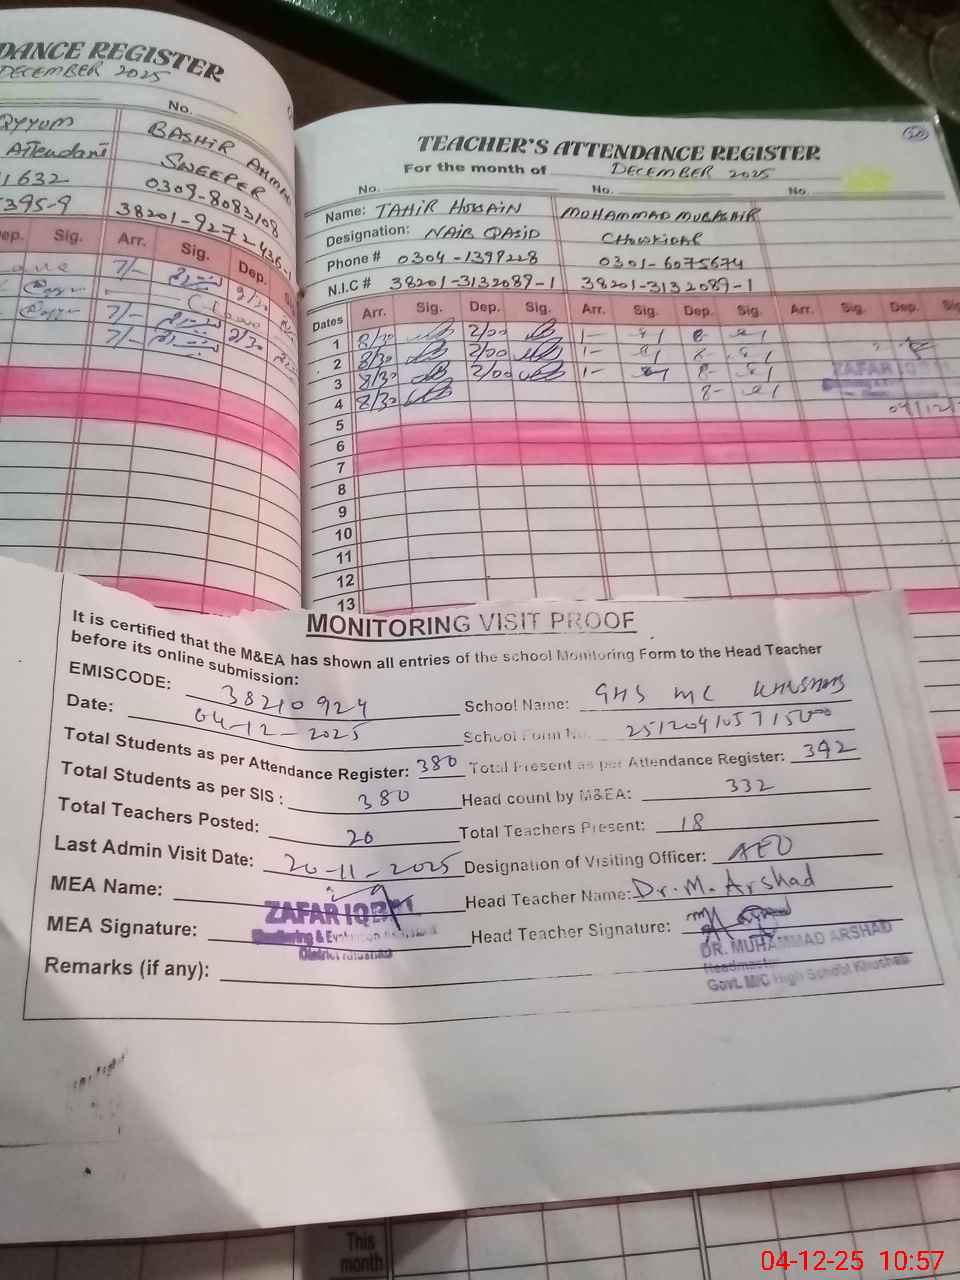 DANCE REGISTER
DECEMBER 2025
No.
QYYUM
BASHIR AHMAD
Attendant
SWEEPER
1632
0309-8083108
395-9
38201-9272436-1
Dep. Sig. Arr. Sig. Dep.
7/-
7/-
7/- 2/30
50
TEACHER'S ATTENDANCE REGISTER
For the month of DECEMBER 2025
No. No. No.
Name: TAHIR HUSSAIN MUHAMMAD MUBASHIR
Designation: NAIB QASID CHOWKIDAR
Phone # 0304-1397228 0301-6075674
N.I.C # 38201-3132089-1 38201-3132089-1
Dates Arr. Sig. Dep. Sig. Arr. Sig. Dep. Sig. Arr. Sig. Dep.
1 8/30 2/00 1- 8-
2 8/30 2/00 1- 8-
3 8/30 2/00 1- 8- ZAFAR IQBAL
4 8/30 8-
04/12/
5
6
7
8
9
10
11
12
13
MONITORING VISIT PROOF
It is certified that the M&EA has shown all entries of the school Monitoring Form to the Head Teacher
before its online submission:
EMISCODE: 38210924 School Name: GHS MC KHUSHAB
Date: 04-12-2025 School Form No.
Total Students as per Attendance Register: 380 Total Present as per Attendance Register: 342
Total Students as per SIS: 380 Head count by M&EA: 332
Total Teachers Posted: 20 Total Teachers Present: 18
Last Admin Visit Date: 20-11-2025 Designation of Visiting Officer: AEO
MEA Name: Head Teacher Name: Dr. M. Arshad
ZAFAR IQBAL
MEA Signature: Head Teacher Signature:
Monitoring & Evaluation
District Khushab
DR. MUHAMMAD ARSHAD
Headmaster
Govt. M/C High School Khushab
Remarks (if any):
This
month
04-12-25 10:57